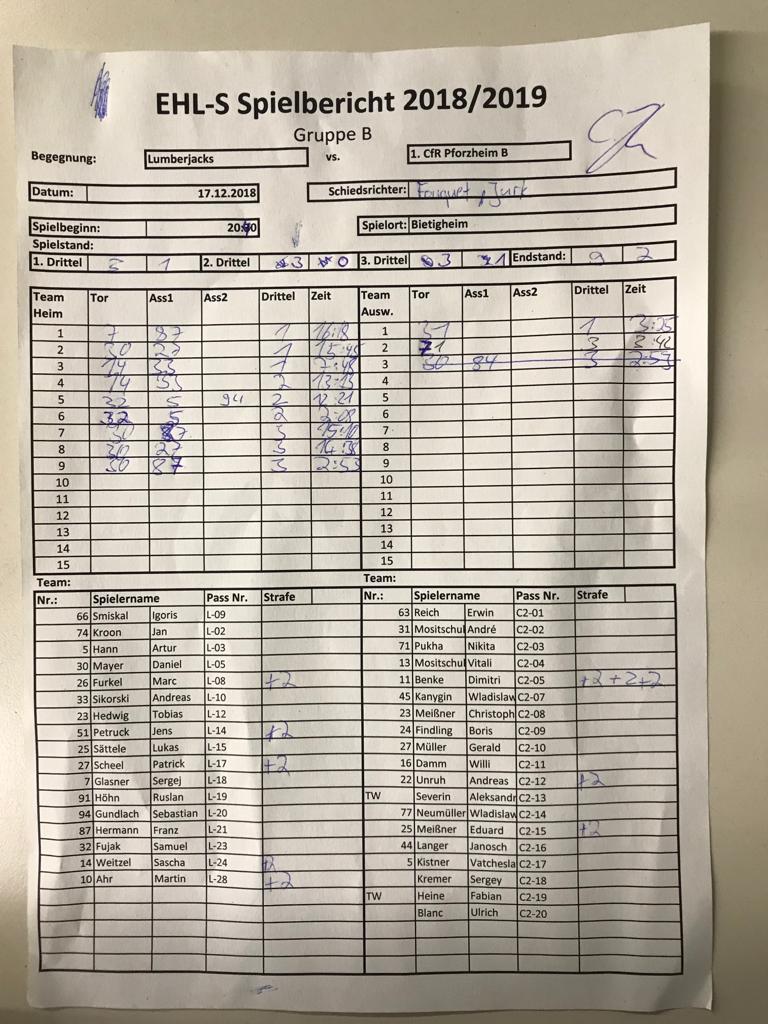 EHL-S Spielbericht 2018/2019
Gruppe B
Begegnung: Lumberjacks vs. 1. CfR Pforzheim B
Datum: 17.12.2018 Schiedsrichter: Fouquet, Jurk
Spielbeginn: Spielort: Bietigheim
Spielstand:
1. Drittel 1 2. Drittel 3 0 3. Drittel 3 1 Endstand: 9 2
Team Heim Tor Ass1 Ass2 Drittel Zeit Team Ausw. Tor Ass1 Ass2 Drittel Zeit
1 7 87 1 1 31 1 3:25
2 30 27 1 2 71 3 3:42
3 14 33 1 7:48 3 30 84 3 2:53
4 14 2 13:13 4
5 32 5 94 2 12:21 5
6 32 5 2 2:08 6
7 30 87 3 15:10 7
8 30 27 3 14:38 8
9 30 87 3 2:53 9
10 10
11 11
12 12
13 13
14 14
15 15
Team: Team:
Nr.: Spielername Pass Nr. Strafe Nr.: Spielername Pass Nr. Strafe
66 Smiskal Igoris L-09 63 Reich Erwin C2-01
74 Kroon Jan L-02 31 Mositschul André C2-02
5 Hann Artur L-03 71 Pukha Nikita C2-03
30 Mayer Daniel L-05 13 Mositschul Vitali C2-04
26 Furkel Marc L-08 +2 11 Benke Dimitri C2-05 +2 +2+2
33 Sikorski Andreas L-10 45 Kanygin Wladislaw C2-07
23 Hedwig Tobias L-12 23 Meißner Christoph C2-08
51 Petruck Jens L-14 +2 24 Findling Boris C2-09
25 Sättele Lukas L-15 27 Müller Gerald C2-10
27 Scheel Patrick L-17 +2 16 Damm Willi C2-11
7 Glasner Sergej L-18 22 Unruh Andreas C2-12 +2
91 Höhn Ruslan L-19 TW Severin Aleksandr C2-13
94 Gundlach Sebastian L-20 77 Neumüller Wladislaw C2-14
87 Hermann Franz L-21 25 Meißner Eduard C2-15 +2
32 Fujak Samuel L-23 44 Langer Janosch C2-16
14 Weitzel Sascha L-24 5 Kistner Vatchesla C2-17
10 Ahr Martin L-28 +2 Kremer Sergey C2-18
TW Heine Fabian C2-19
Blanc Ulrich C2-20